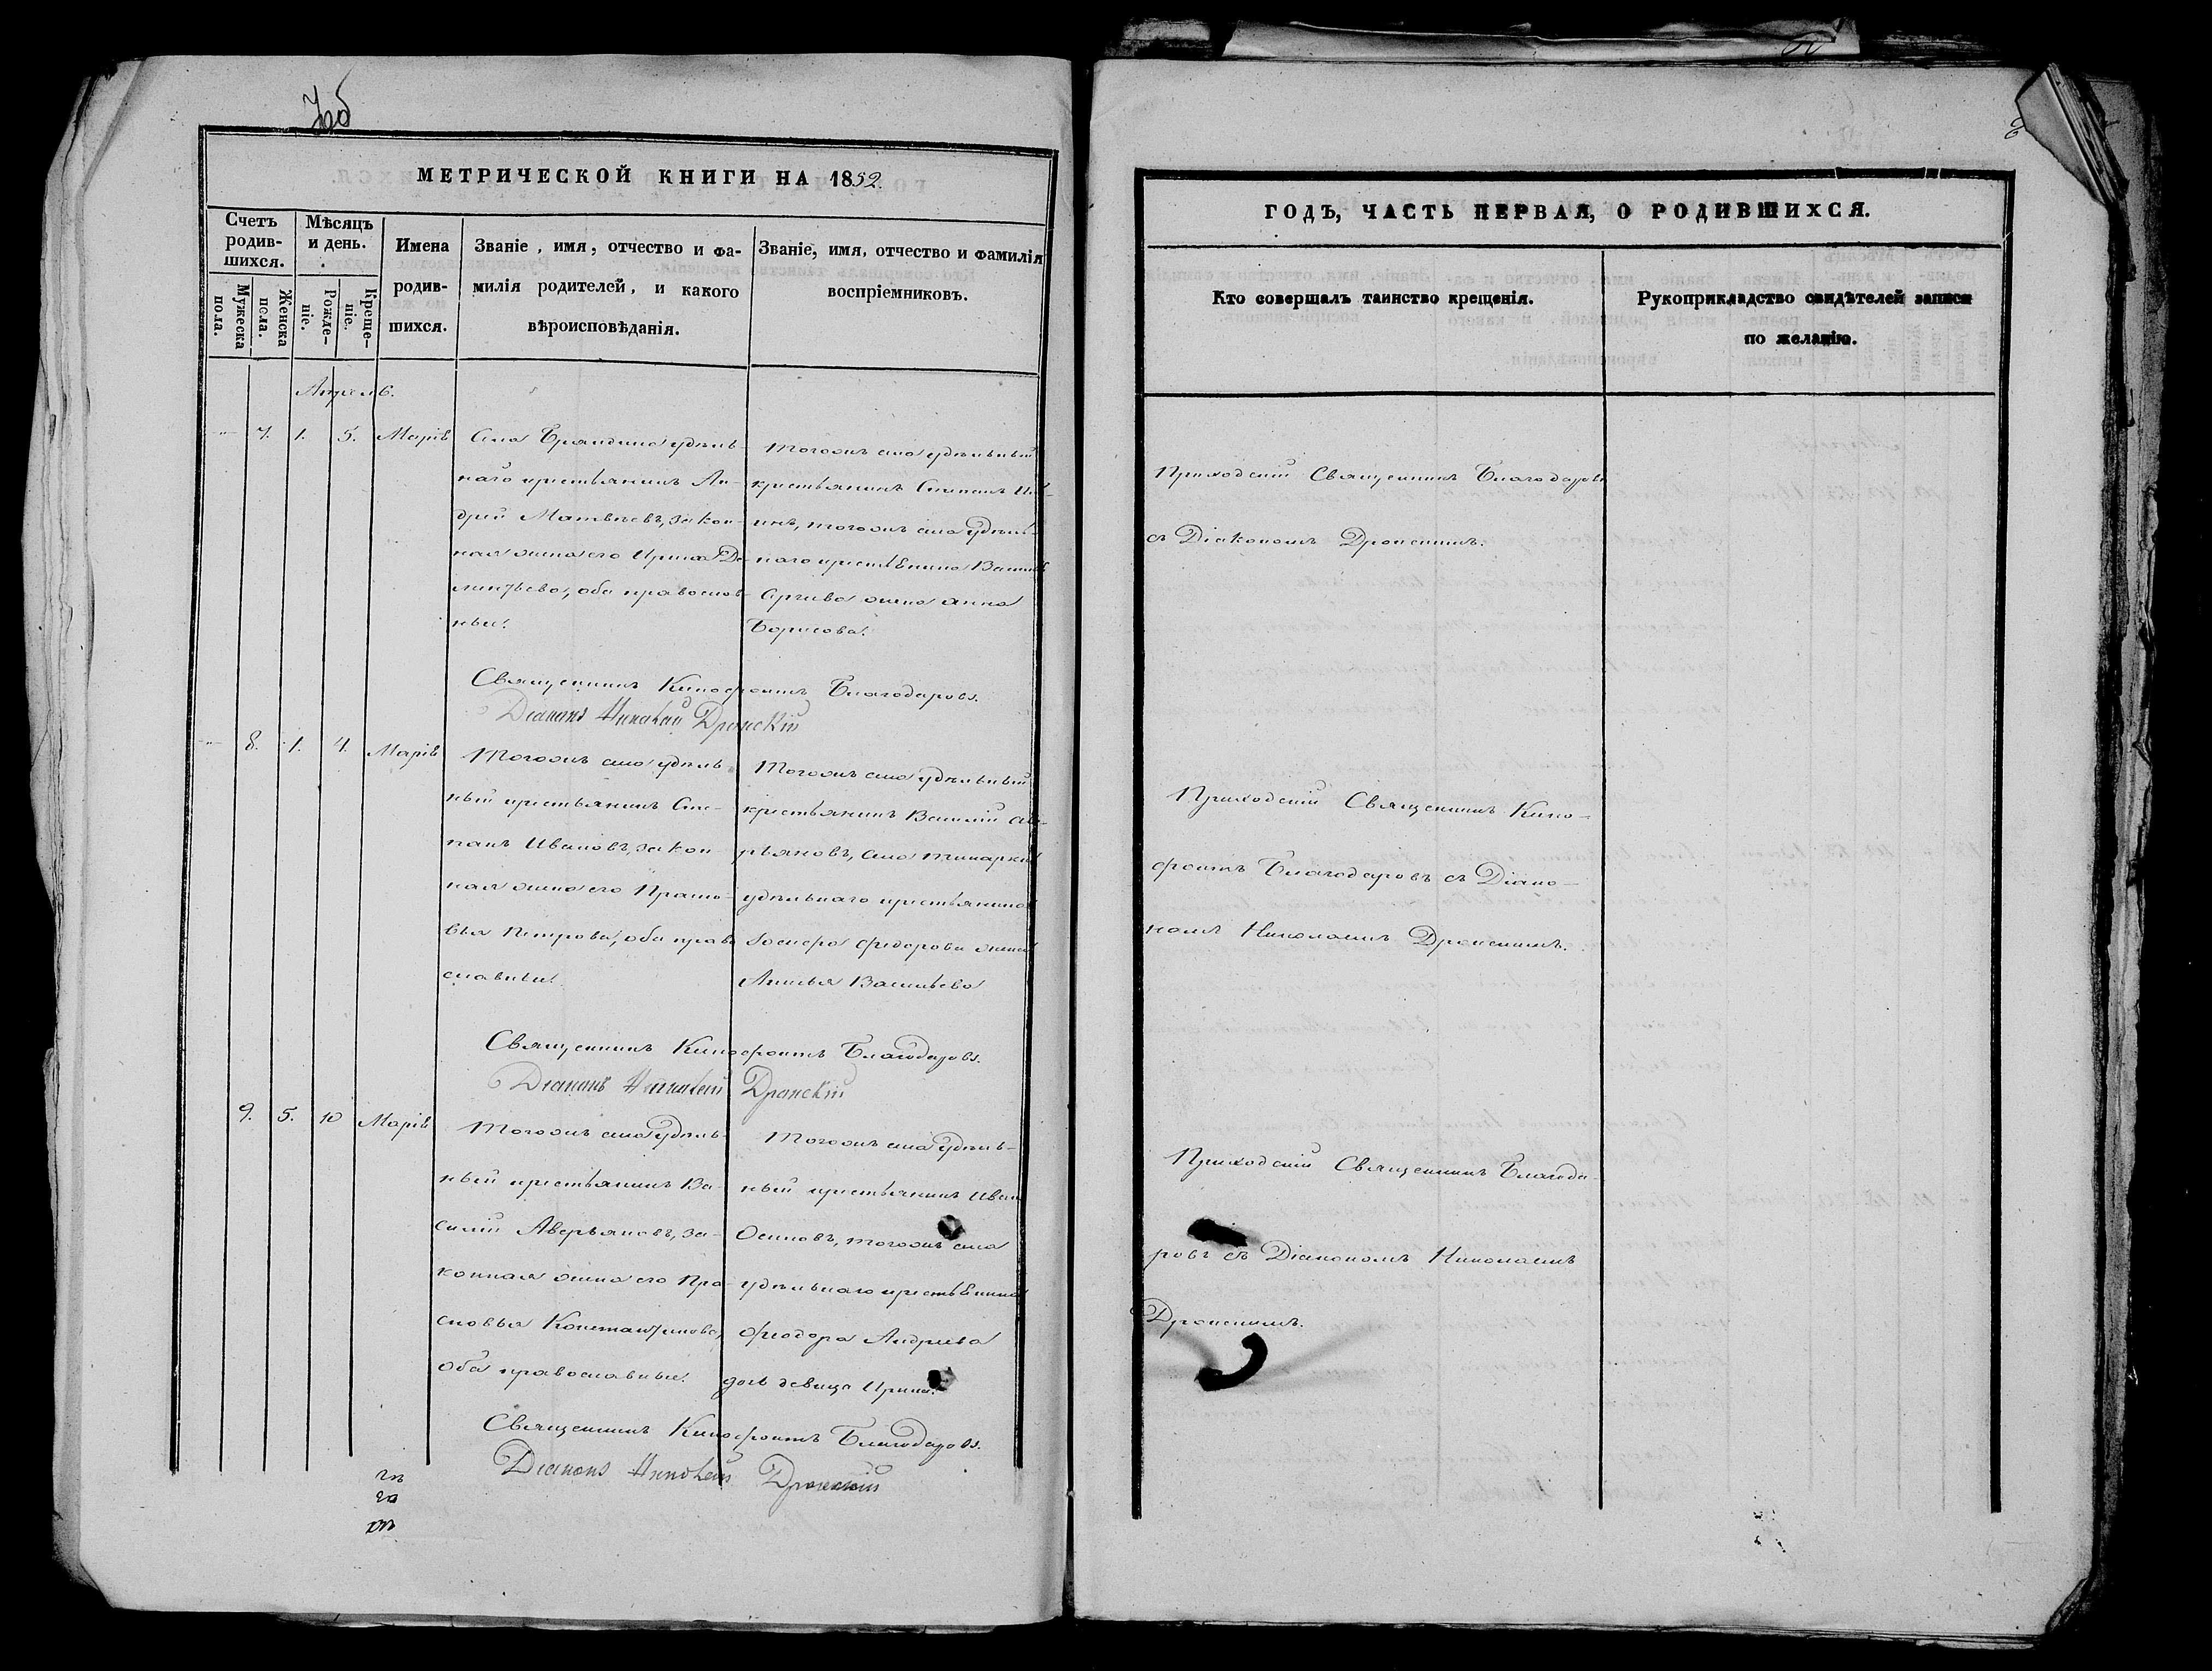 МЕТРИЧЕСКОЙ КНИГИ НА 1852.
Счетъ родив-шихся.
Мужеска пола.
Женска пола.
Мѣсяцъ и день.
Рожде-ніе.
Креще-ніе.
Имена родив-шихся.
Званіе, имя, отчество и фа-
милія родителей, и какого
вѣроисповѣданія.
Званіе, имя, отчество и фамилія
воспріемниковъ.
Апрель.
7. 1. 5. Марія
Села удѣль-
наго крестьянинъ Ан-
дрей Матвѣевъ, закон-
ная жена его Ирина Де-
ментьева, оба православ-
ные.
Тогожъ села удѣльный
крестьянинъ Степанъ Ива-
тогожъ села удѣль-
наго крестьянина
Сергѣева жена Анна
Борисова.
Священникъ Ксенофонтъ Благодаровъ.
Діаконъ Николай Дронскій
8. 1. 4. Марія
Тогожъ села удѣль
ный крестьянинъ Сте-
панъ Ивановъ, закон-
ная жена его Праско-
вья Петрова, оба право
славные.
Тогожъ села удѣльный
крестьянинъ Василій Аве-
рьяновъ, села
удѣльнаго крестьянина
Федорова жена
Васильева
Священникъ Ксенофонтъ Благодаровъ.
Діаконъ Николай Дронскій
9. 5. 10 Марія
Тогожъ села удѣль-
ный крестьянинъ Ва-
силій Аверьяновъ, за-
конная жена его Пра-
сковья Константинова,
оба православные.
Тогожъ села удѣль-
ный крестьянинъ Иван
Осиповъ, тогожъ села
удѣльнаго крестьянина
Феодора Андреева
дочь девица Ирина.
Священникъ Ксенофонтъ Благодаровъ.
Діаконъ Николай Дронскій
ГОДЪ, ЧАСТЬ ПЕРВАЯ, О РОДИВШИХСЯ.
Кто совершалъ таинство крещенія.
Рукоприкладство свидѣтелей записи
по желанію.
Приходскій Священникъ Благодаровъ
съ Діакономъ Дронскимъ.
Приходскій Священникъ Ксено-
фонтъ Благодаровъ съ Діако-
номъ Николаемъ Дронскимъ.
Приходскій Священникъ Благода-
ровъ съ Діакономъ Николаемъ
Дронскимъ.